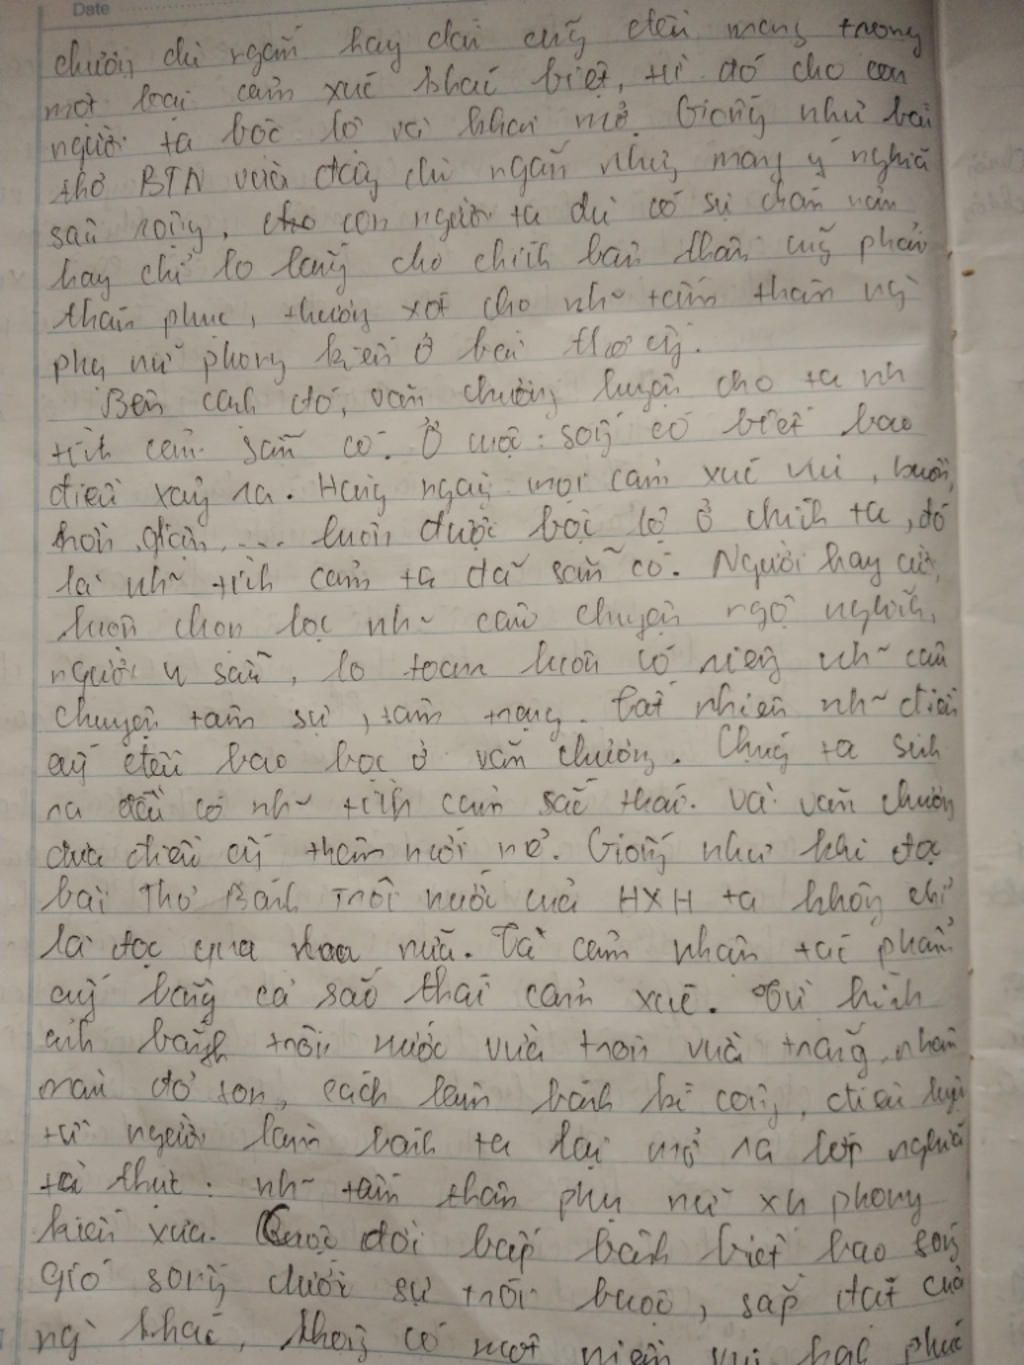 Date
chương dù ngắn hay dài cũng đều mang trong
một loại cảm xúc khác biệt, từ đó cho con
người ta bộc lộ và khai mở. Giống như bài
thơ BTN vừa đây dù ngắn nhưng mang ý nghĩa
sâu rộng, cho con người ta dù có sự chán nản
hay chỉ lo lắng cho chính bản thân cũg phải
thán phục, thương xót cho nh~ tấm thân ng`
phụ nữ phong kiến ở bài thơ ấy.
Bên cạnh đó, văn chương luyện cho ta nh
tình cảm sẵn có. Ở cuộc sống có biết bao
điều xảy ra. Hàng ngày mọi cảm xúc vui, buồn,
hờn, giận, ... luôn được bộc lộ ở chính ta, đó
là nh~ tình cảm ta đã sẵn có. Người hay cười,
luôn chọn lọc nh~ câu chuyện ngộ nghĩnh,
người u sầu, lo toan luôn có riêng nh~ câu
chuyện tâm sự, tâm trạng. Tất nhiên nh~ điều
ấy đều bao bọc ở văn chương. Chúng ta sinh
ra đều có nh~ tình cảm sắc thái. Và văn chương
đưa điều ấy thêm mới mẻ. Giống như khi đọc
bài thơ Bánh trôi nước của HXH ta không chỉ
là đọc qua nữa. Ta cảm nhận tác phẩm
ấy bằng cả sắc thái cảm xúc. Từ hình
ảnh bánh trôi nước vừa tròn vừa trắng, nhân
màu đỏ son, cách làm bánh kì công, điêu luyện
từ người làm bánh ta lại mở ra lớp nghĩa
tả thực: nh~ tấm thân phụ nữ xh phong
kiến xưa. Cuộc đời bấp bênh biết bao sóng
gió sống dưới sự trói buộc, sắp đặt của
ng` khác, không có một niềm vui hạnh phúc